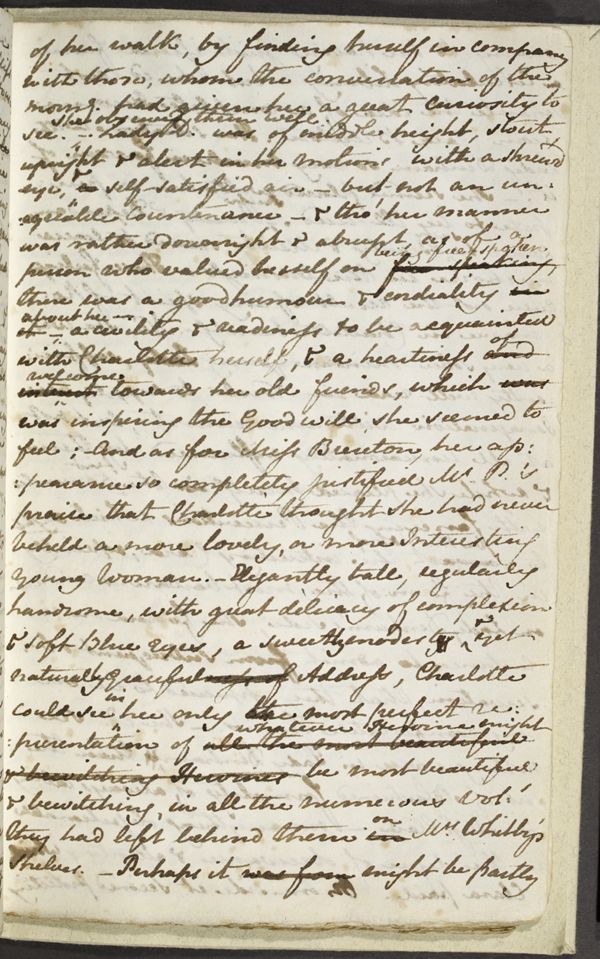 of her walk, by finding herself in company
with those, whom the conversation of the
morng. had given her a great curiosity to
see. – she observed them well. Lady D. was of middle height, stout,
upright & alert in her motions with a shrewd
eye, & self-satisfied air – but not an un:
:agreable Countenance – & tho' her manner
was rather downright & abrupt, as of a
person who valued herself on being free-spoken
there was a goodhumour & cordiality in
about her – a civility & readiness to be acquainted
with Charlotte herself, & a heartiness and of
interest welcome towards her old friends, which was
was inspiring the Good will, she seemed to
feel; – And as for Miss Brereton, her ap:
:pearance so completely justified Mr. P.'s
praise that Charlotte thought she had never
beheld a more lovely, or more Interesting
young Woman. – Elegantly tall, regularly
handsome, with great delicacy of complexion
& soft Blue eyes, a sweetly modest & yet
naturally gracefulness of Address, Charlotte
could see in her only the most perfect re:
:presentation of all the most beautiful whatever Heroine might
& bewitching Heroines be most beautiful
& bewitching, in all the numerous vol:s
they had left behind them in on Mrs Whitby's
shelves. – Perhaps it was from might be partly